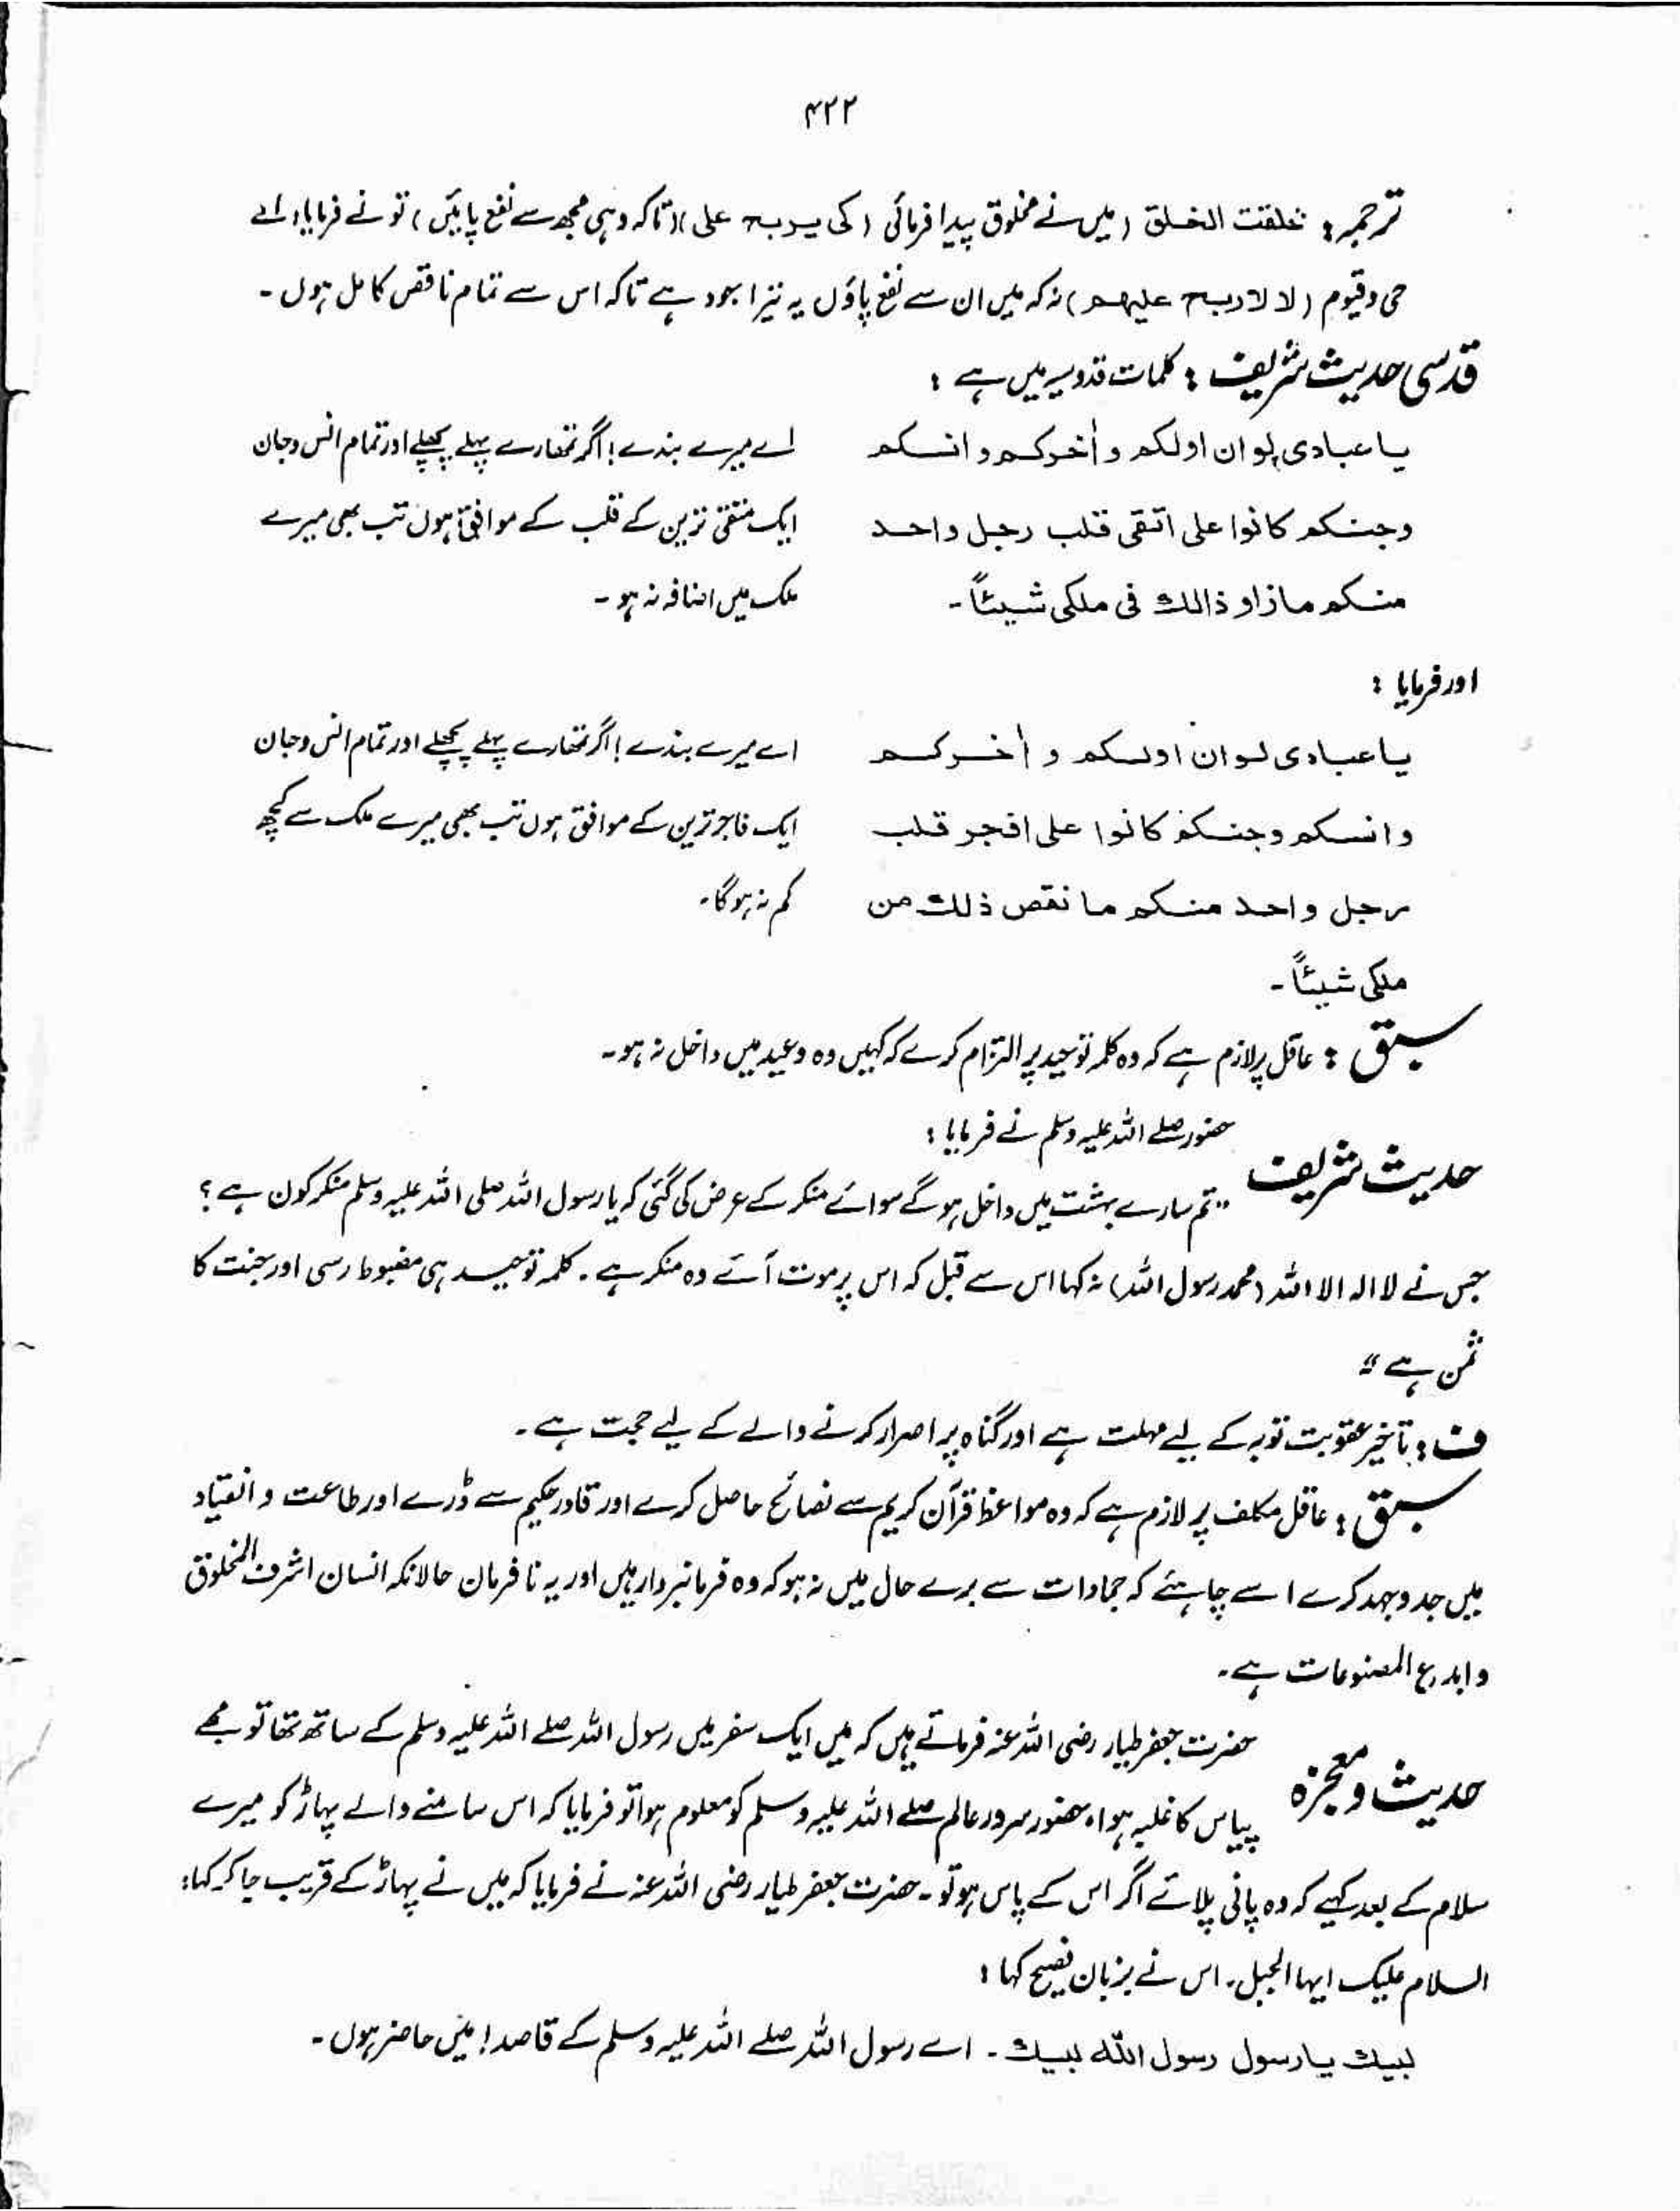 ۴۲۲
ترجمہ : خلقت الخلق (میں نے مخلوق پیدا فرمائی (کی یربح علی)(تاکہ وہی مجھ سے نفع پائیں) تو نے فرمایا، اے
حی وقیوم (لا لاربح علیھم) نہ کہ میں ان سے نفع پاؤں یہ تیرا جود ہے تاکہ اس سے تمام ناقص کامل ہوں ۔
قدسی حدیث شریف : کلمات قدوسیہ میں ہے :
یا عبادی لو ان اولکم و أخرکم و انسکم
وجنکم کانوا علی اتقی قلب رجل واحد
منکم مازاد ذالك فی ملکی شیئاً ۔
اے میرے بندے! اگر تمہارے پہلے پچھلے اور تمام انس وجان
ایک متقی ترین کے قلب کے موافق ہوں تب بھی میرے
ملک میں اضافہ نہ ہو ۔
اور فرمایا :
یا عبادی لو ان اولکم و أخرکم
وانسکم وجنکم کانوا علی افجر قلب
رجل واحد منکم ما نقص ذلك من
ملکی شیئاً ۔
اے میرے بندے! اگر تمہارے پہلے پچھلے اور تمام انس وجان
ایک فاجر ترین کے موافق ہوں تب بھی میرے ملک سے کچھ
کم نہ ہوگا ۔
سبق : عاقل پر لازم ہے کہ وہ کلمہ توحید پر التزام کرے کہ کہیں وہ وعید میں داخل نہ ہو ۔
حضور صلے اللہ علیہ وسلم نے فرمایا :
حدیث شریف "تم سارے بہشت میں داخل ہو گے سوائے منکر کے عرض کی گئی کہ یا رسول اللہ صلی اللہ علیہ وسلم منکر کون ہے ؟
جس نے لا الہ الا اللہ (محمد رسول اللہ) نہ کہا اس سے قبل کہ اس پر موت آئے وہ منکر ہے ۔ کلمہ توحید ہی مضبوط رسی اور جنت کا
ثمن ہے "
ف : تاخیر عقوبت توبہ کے لیے مہلت ہے اور گناہ پر اصرار کرنے والے کے لیے حجت ہے ۔
سبق : عاقل مکلف پر لازم ہے کہ وہ مواعظ قرآن کریم سے نصائح حاصل کرے اور قادر حکیم سے ڈرے اور طاعت و انقیاد
میں جدوجہد کرے اسے چاہئے کہ جمادات سے برے حال میں نہ ہو کہ وہ فرمانبردار ہیں اور یہ نا فرمان حالانکہ انسان اشرف المخلوق
وابدع المصنوعات ہے ۔
حضرت جعفر طیار رضی اللہ عنہ فرماتے ہیں کہ میں ایک سفر میں رسول اللہ صلے اللہ علیہ وسلم کے ساتھ تھا تو مجھے
حدیث و معجزہ پیاس کا غلبہ ہوا، حضور سرور عالم صلے اللہ علیہ وسلم کو معلوم ہوا تو فرمایا کہ اس سامنے والے پہاڑ کو میرے
سلام کے بعد کہیے کہ وہ پانی پلائے اگر اس کے پاس ہو تو ۔ حضرت جعفر طیار رضی اللہ عنہ نے فرمایا کہ میں نے پہاڑ کے قریب جا کر کہا :
السلام علیک ایہا الجبل ۔ اس نے بزبان فصیح کہا :
لبیك یا رسول رسول اللّٰه لبیك ۔ اے رسول اللہ صلے اللہ علیہ وسلم کے قاصد! میں حاضر ہوں ۔